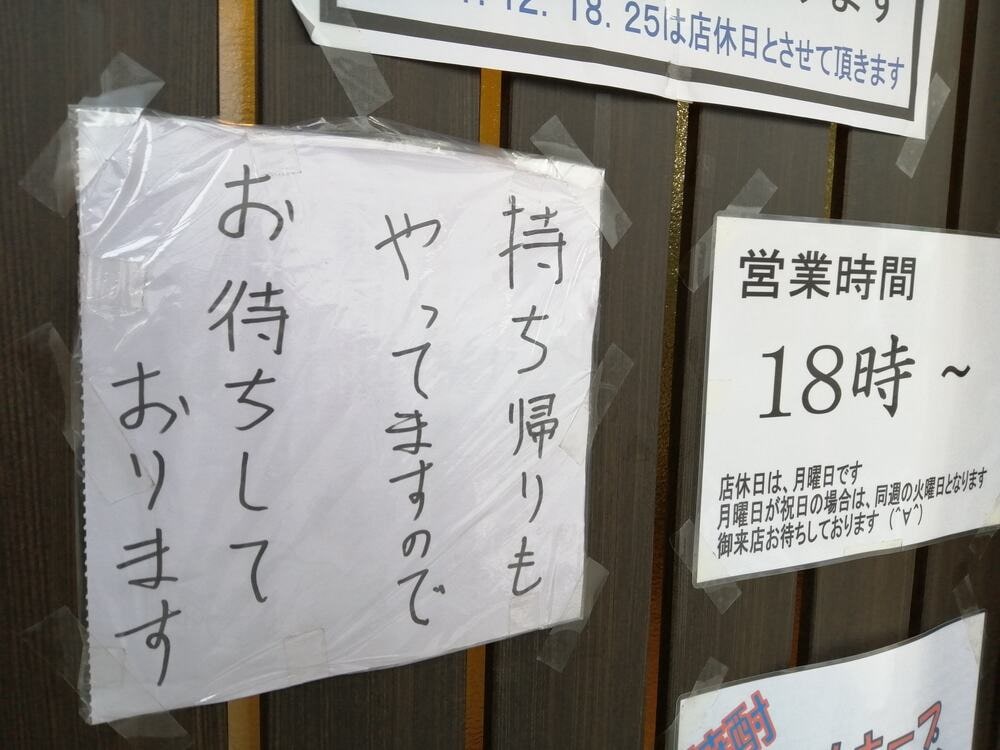 12. 18. 25は店休日とさせて頂きます
持ち帰りも
やってますので
お待ちして
おります
営業時間
18時～
店休日は、月曜日です
月曜日が祝日の場合は、同週の火曜日となります
御来店お待ちしております（^∀^）